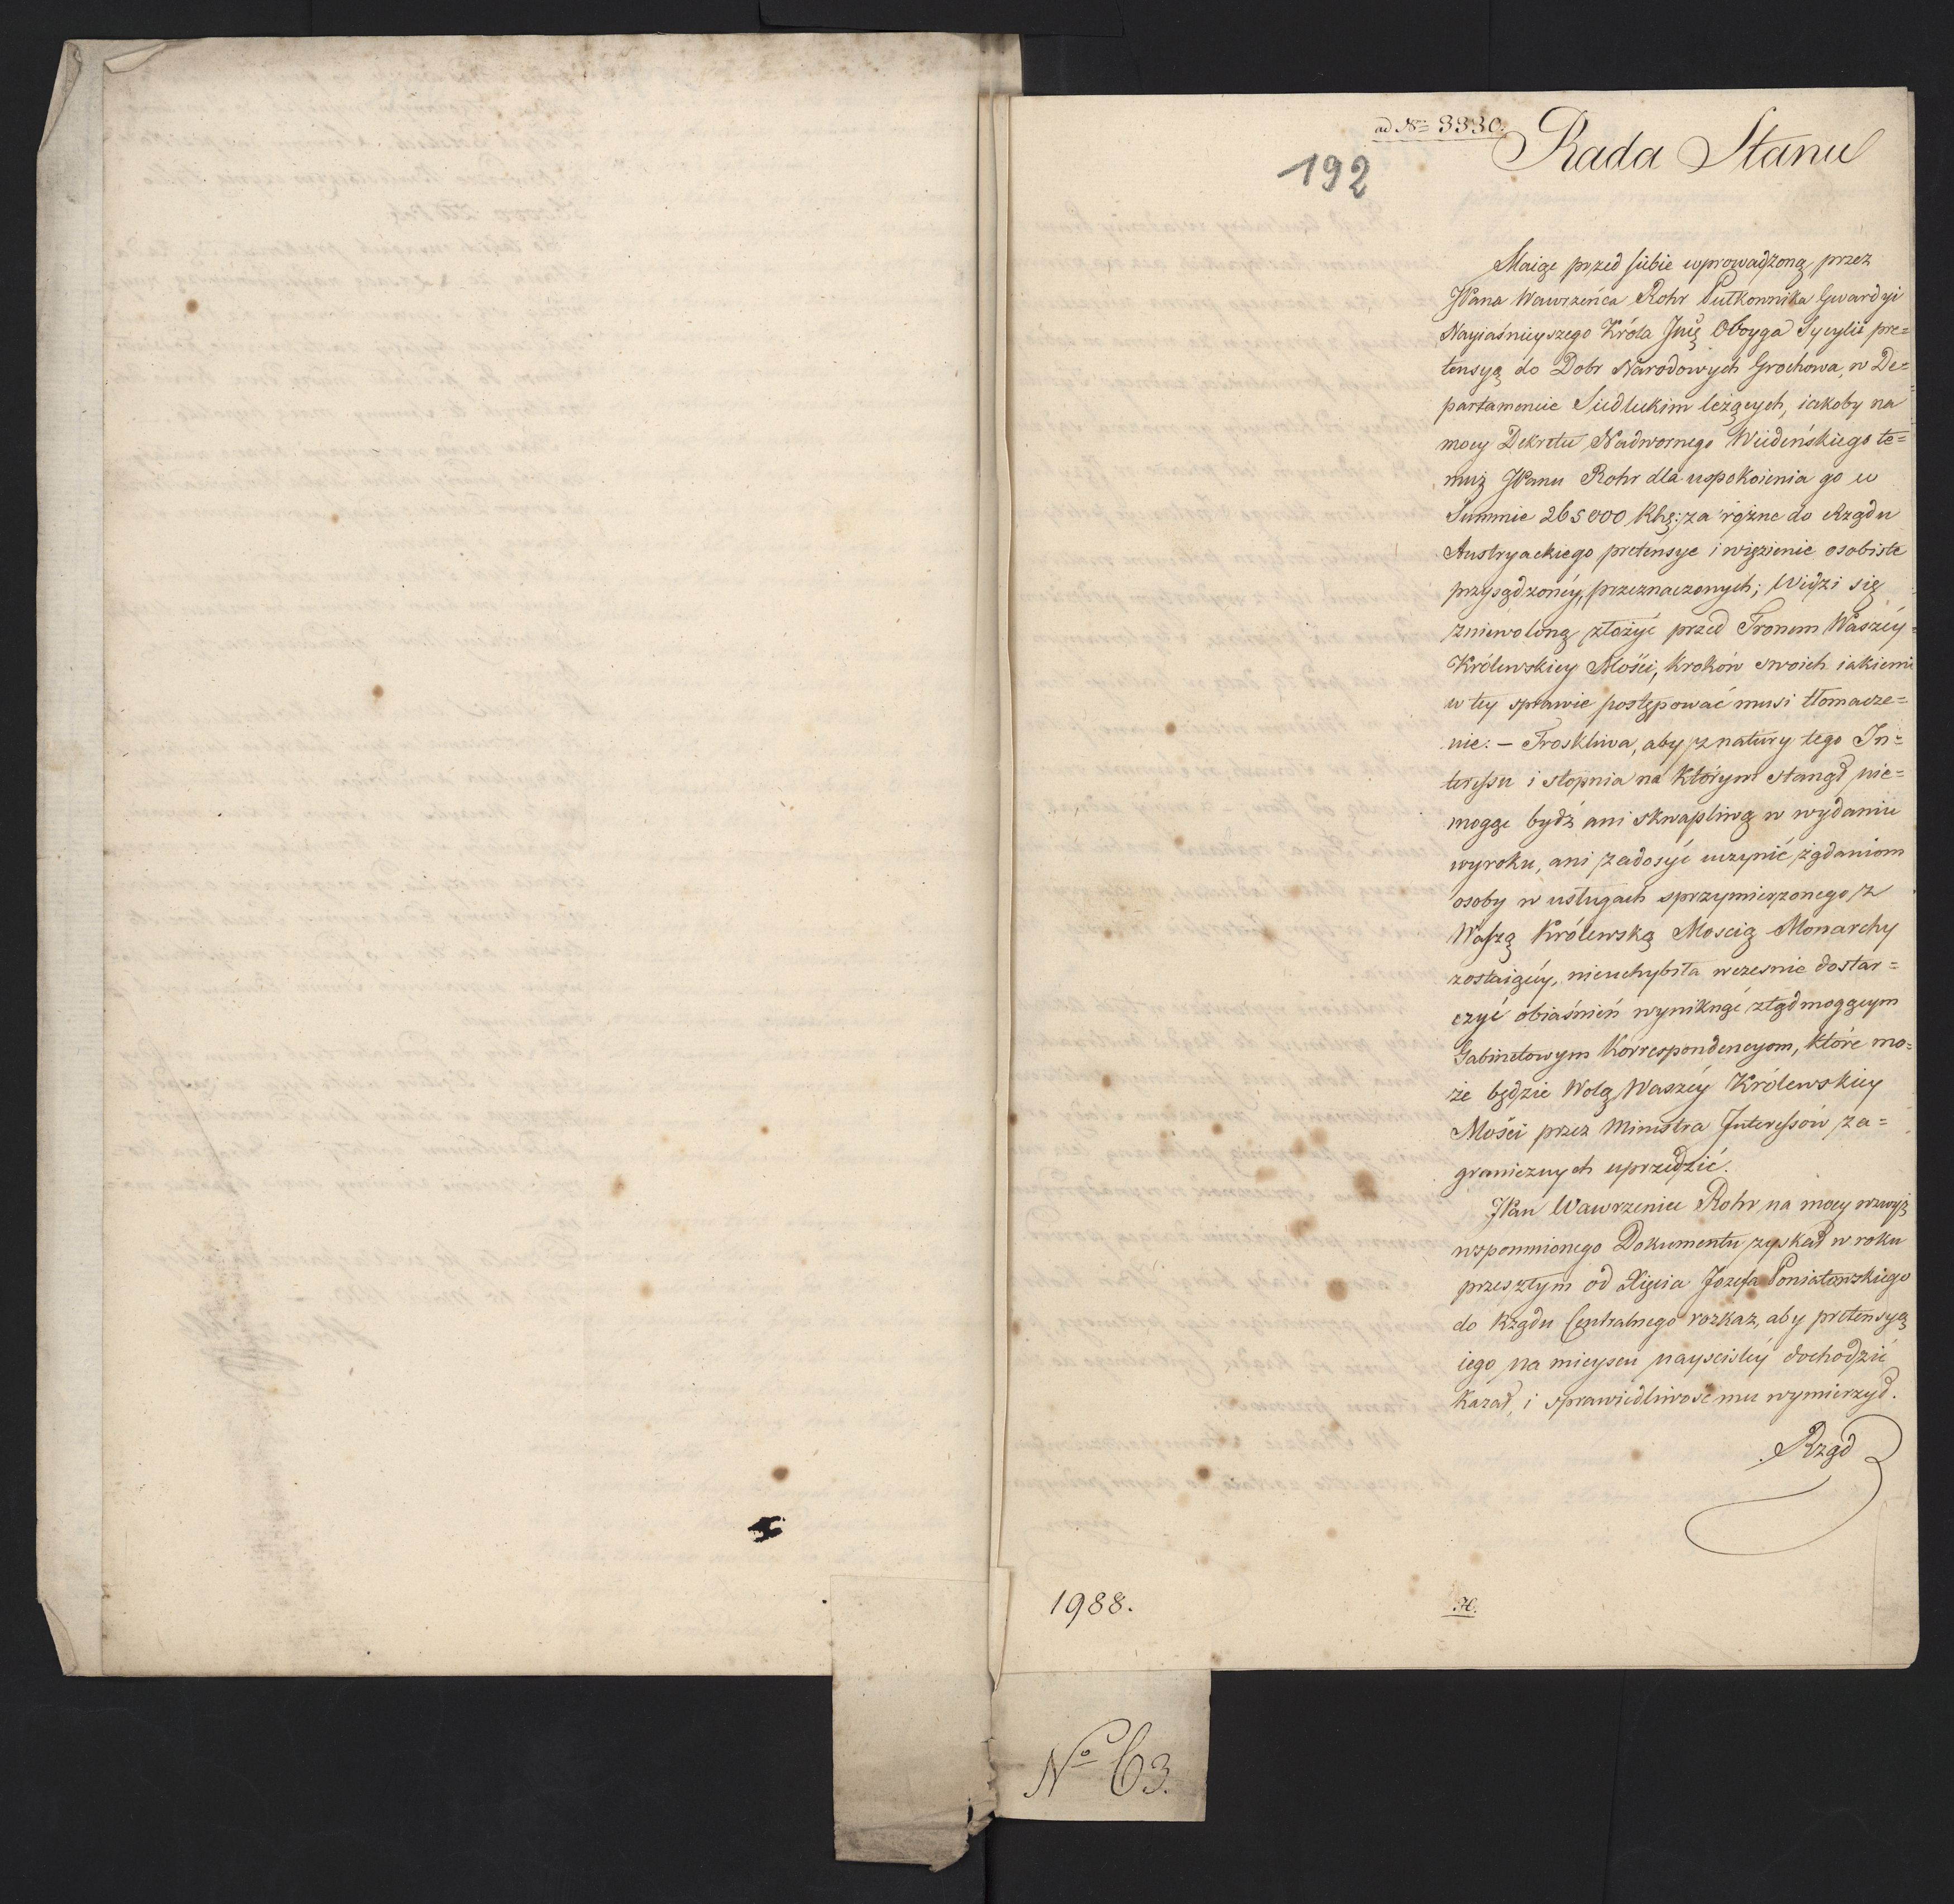 ad Nm 3330.
Rada Stanu
192
Maiąc przed sobie wprowadzoną przez
JPana Wawrzeńca Rohr Pułkownika Gwardyi
Nayiaśnieyszego Króla Jmę Oboyga Sycylii pre=
tensyą do Dobr Narodowych Grochowa, w De=
partamencie Siedleckim leżących, iakoby na
mocy Dekretu Nadwornego Wiedeńskiego te=
muż JPanu Rohr dla uspokoienia go w
Summie 265000 Rhę: za rożne do Rządu
Austryackiego pretensye i więzienie osobiste
przysądzonéy, przeznaczonych; Widzi się
zniewoloną złożyć przed Tronem Waszéy
Królewskiey Mości, kroków swoich iakiemi
w tey sprawie postępować musi tłomacze=
nie. – Troskliwa, aby z natury tego In=
teressu i stopnia na którym stanął nie=
mogąc bydź ani skwapliwą w wydaniu
wyroku, ani zadosyć uczynić żądaniom
osoby w usługach sprzymierzonego z
Waszą Królewską Moscią Monarchy
zostaiącéy, nieuchybiła wczesnie dostar=
czyć obiaśnień wyniknąć ztąd mogącym
Gabinetowym Korrespondencyom, które mo=
że będzie Wolą Waszéy Królewskiey
Mości przez Ministra Interessów za=
granicznych uprzedzić.
JPan Wawrzeniec Rohr na mocy wzwyż
wspomnionego Dokumentu zyskał w roku
przeszłym od Xięcia Jozefa Poniatowskiego
do Rządu Centralnego rozkaz, aby pretensyą
iego na mieyscu nayscisléy dochodzić
kazał, i sprawiedliwość mu wymierzył.
Rząd
1988.
H.
No 63.